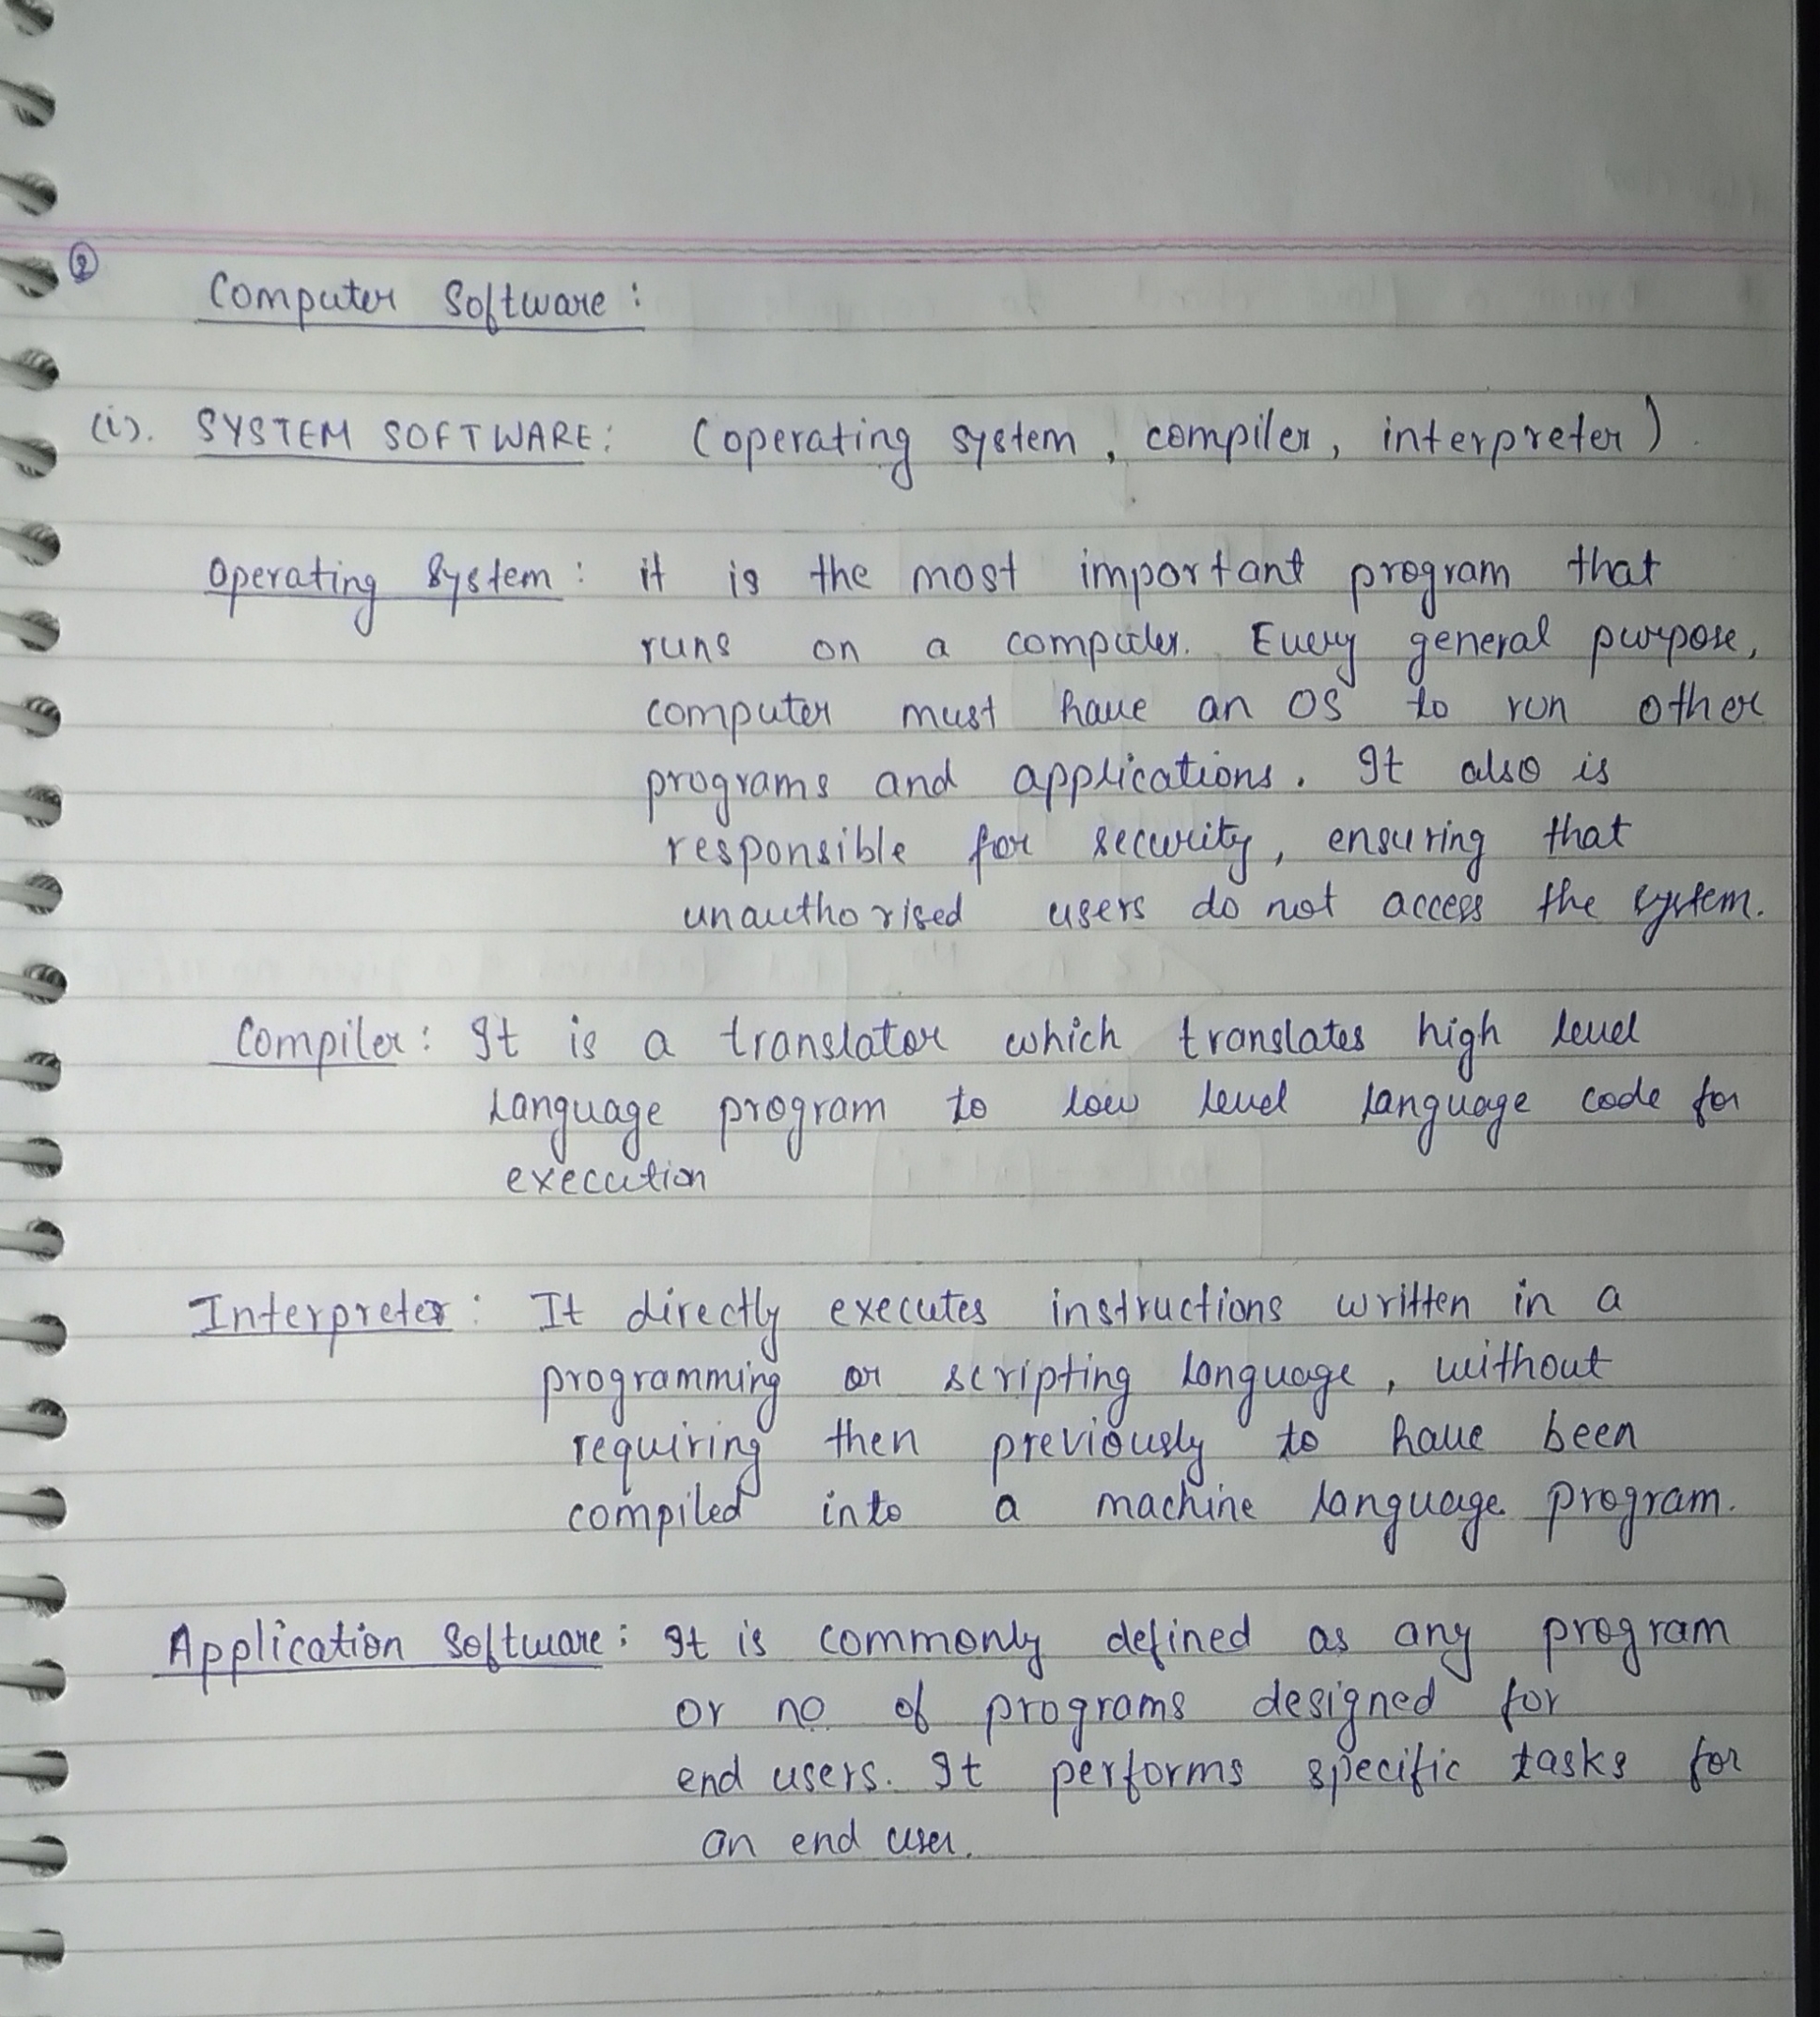 ②
Computer Software :
(i). SYSTEM SOFTWARE: (operating system, compiler, interpreter).
Operating System : it is the most important program that
runs on a computer. Every general purpose,
computer must have an OS to run other
programs and applications. It also is
responsible for security, ensuring that
unauthorised users do not access the system.
Compiler : It is a translator which translates high level
language program to low level language code for
execution
Interpreter : It directly executes instructions written in a
programming or scripting language, without
requiring then previously to have been
compiled into a machine language program.
Application Software : It is commonly defined as any program
or no. of programs designed for
end users. It performs specific tasks for
an end user.